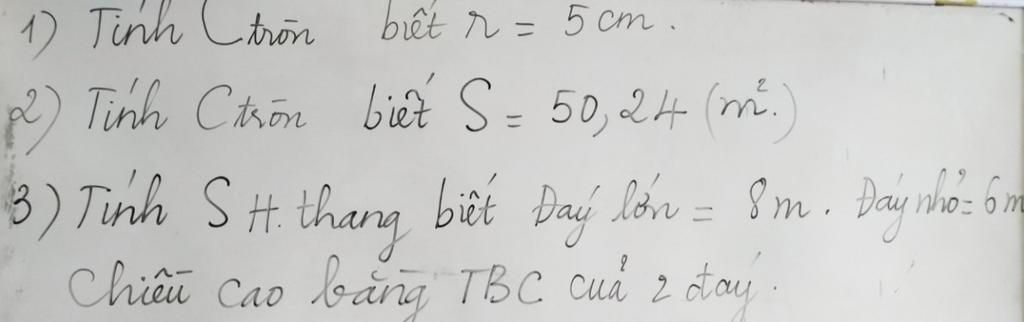 1) Tính C tròn biết r = 5cm.
2) Tính C tròn biết S = 50,24 (m².)
3) Tính S H. thang biết Đáy lớn = 8m. Đáy nhỏ = 6m
Chiều cao bằng TBC của 2 đáy.